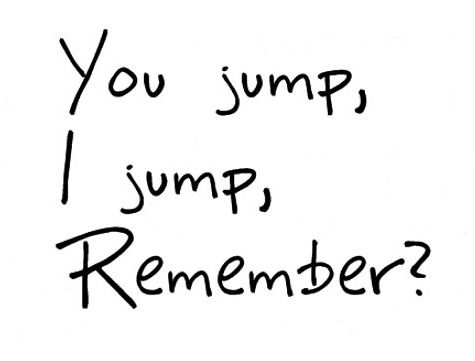 You jump,
I jump,
Remember?